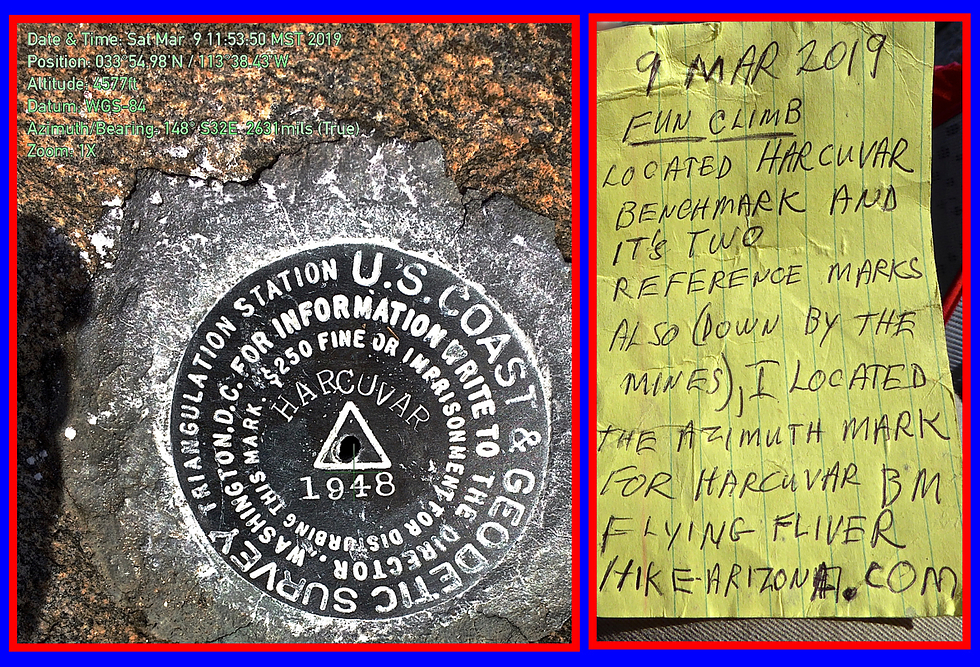 Date & Time: Sat Mar 9 11:53:50 MST 2019
Position: 033°54.98'N / 113°38.43'W
Altitude: 4577ft
Datum: WGS-84
Azimuth/Bearing: 148° S32E 2631mils (True)
Zoom: 1X
U.S. COAST & GEODETIC SURVEY
TRIANGULATION STATION
FOR INFORMATION WRITE TO THE DIRECTOR. WASHINGTON.D.C.
$250 FINE OR IMPRISONMENT FOR DISTURBING THIS MARK.
HARCUVAR
1948
9 MAR 2019
FUN CLIMB
LOCATED HARCUVAR
BENCHMARK AND
IT'S TWO
REFERENCE MARKS
ALSO (DOWN BY THE
MINES), I LOCATED
THE AZIMUTH MARK
FOR HARCUVAR BM
FLYING FLIVER
HIKE-ARIZONA.COM